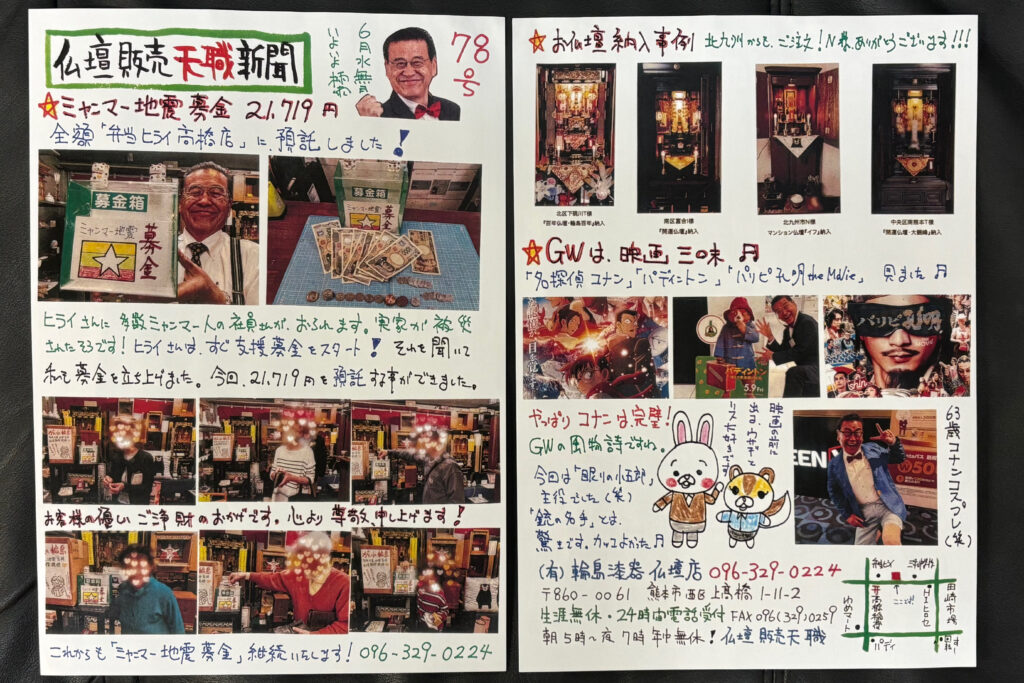 仏壇販売天職新聞
6月水無月
いよいよ梅雨
78号
ミャンマー地震募金 21,719円
全額「弁当ヒライ高橋店」に預託しました！
募金箱
ミャンマー地震
募金
募金箱
ヒライさんに多数ミャンマー人の社員さんが、おられます。実家が被災
されたそうです！ヒライさんは、すぐ支援募金をスタート！それを聞いて
私も募金を立ち上げました。今回、21,719円を預託する事ができました。
お客様の優しいご浄財のおかげです。心より尊敬申し上げます！
これからも「ミャンマー地震募金」継続いたします！ 096-329-0224
お仏壇納入事例 北九州からも、ご注文！N様、ありがとうございます!!!
北区下硯川T様
『百年仏壇・輪島百年』納入
南区富合I様
『開運仏壇』納入
北九州市N様
マンション仏壇『イフ』納入
中央区南熊本T様
『開運仏壇・大観峰』納入
GWは、映画三昧
「名探偵コナン」「パディントン」「パリピ孔明 the Movie」見ました
パディントン
5.9 Fri
パリピ孔明
やっぱりコナンは完璧！
GWの風物詩ですね。
今回は「眠りの小五郎」
主役でした（笑）
「銃の名手」とは、
驚きです。カッコよかった
映画の前に
出る、ウサギと
リス大好きです
63歳コナンコスプレ（笑）
（有）輪島漆器仏壇店 096-329-0224
〒860-0061 熊本市西区上高橋1-11-2
生涯無休・24時間電話受付 FAX096(329)0259
朝5時〜夜7時年中無休！仏壇販売天職
高橋稲荷
ゆめマート
ここ
田崎市場
パディ